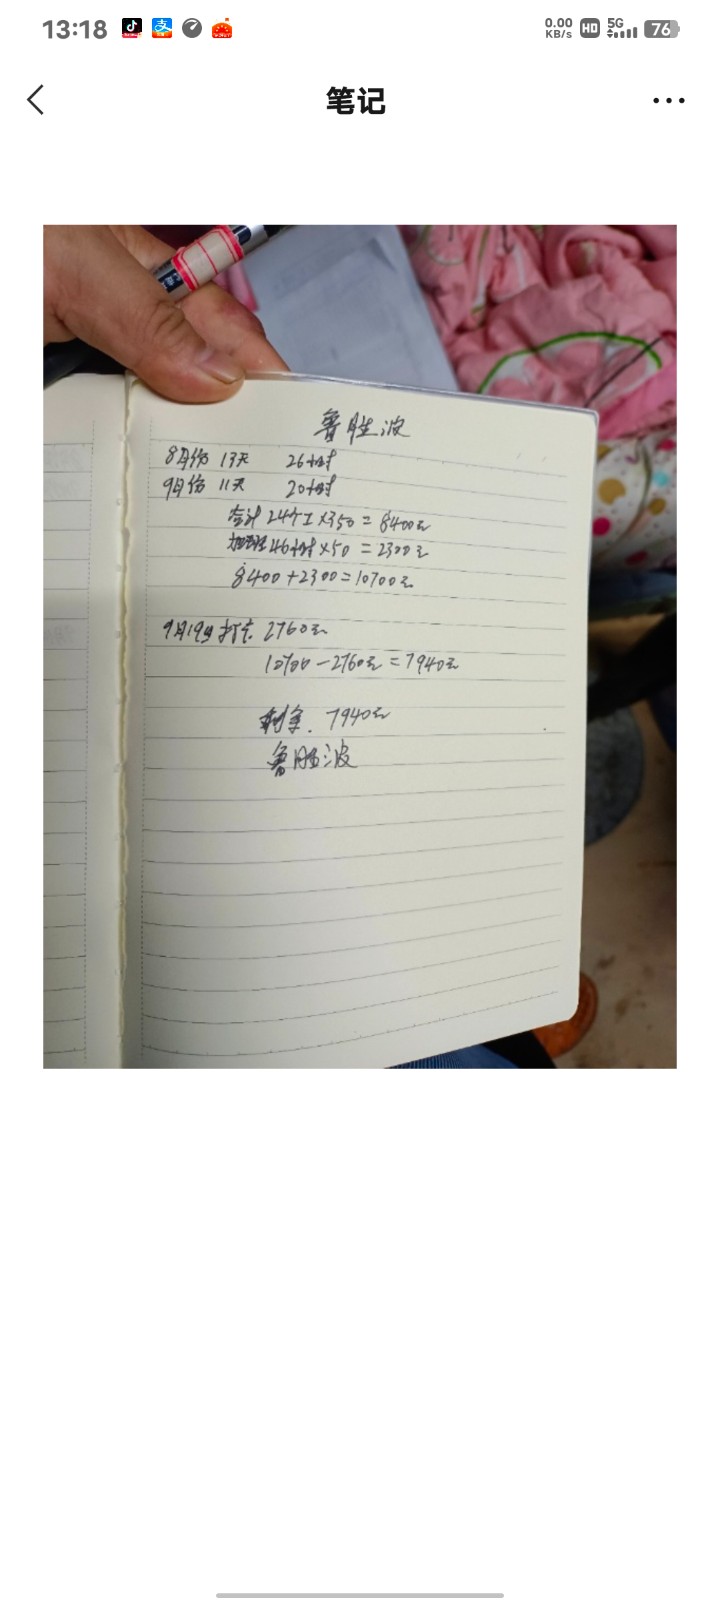 13:18
0.00
KB/s
HD
5G
76
笔记
鲁胜波
8月份 13天 26小时
9月份 11天 20小时
合计24个工×350=8400元
加班46小时×50=2300元
8400+2300=10700元
9月19日 打卡 2760元
10700-2760元=7940元
剩余.7940元
鲁胜波